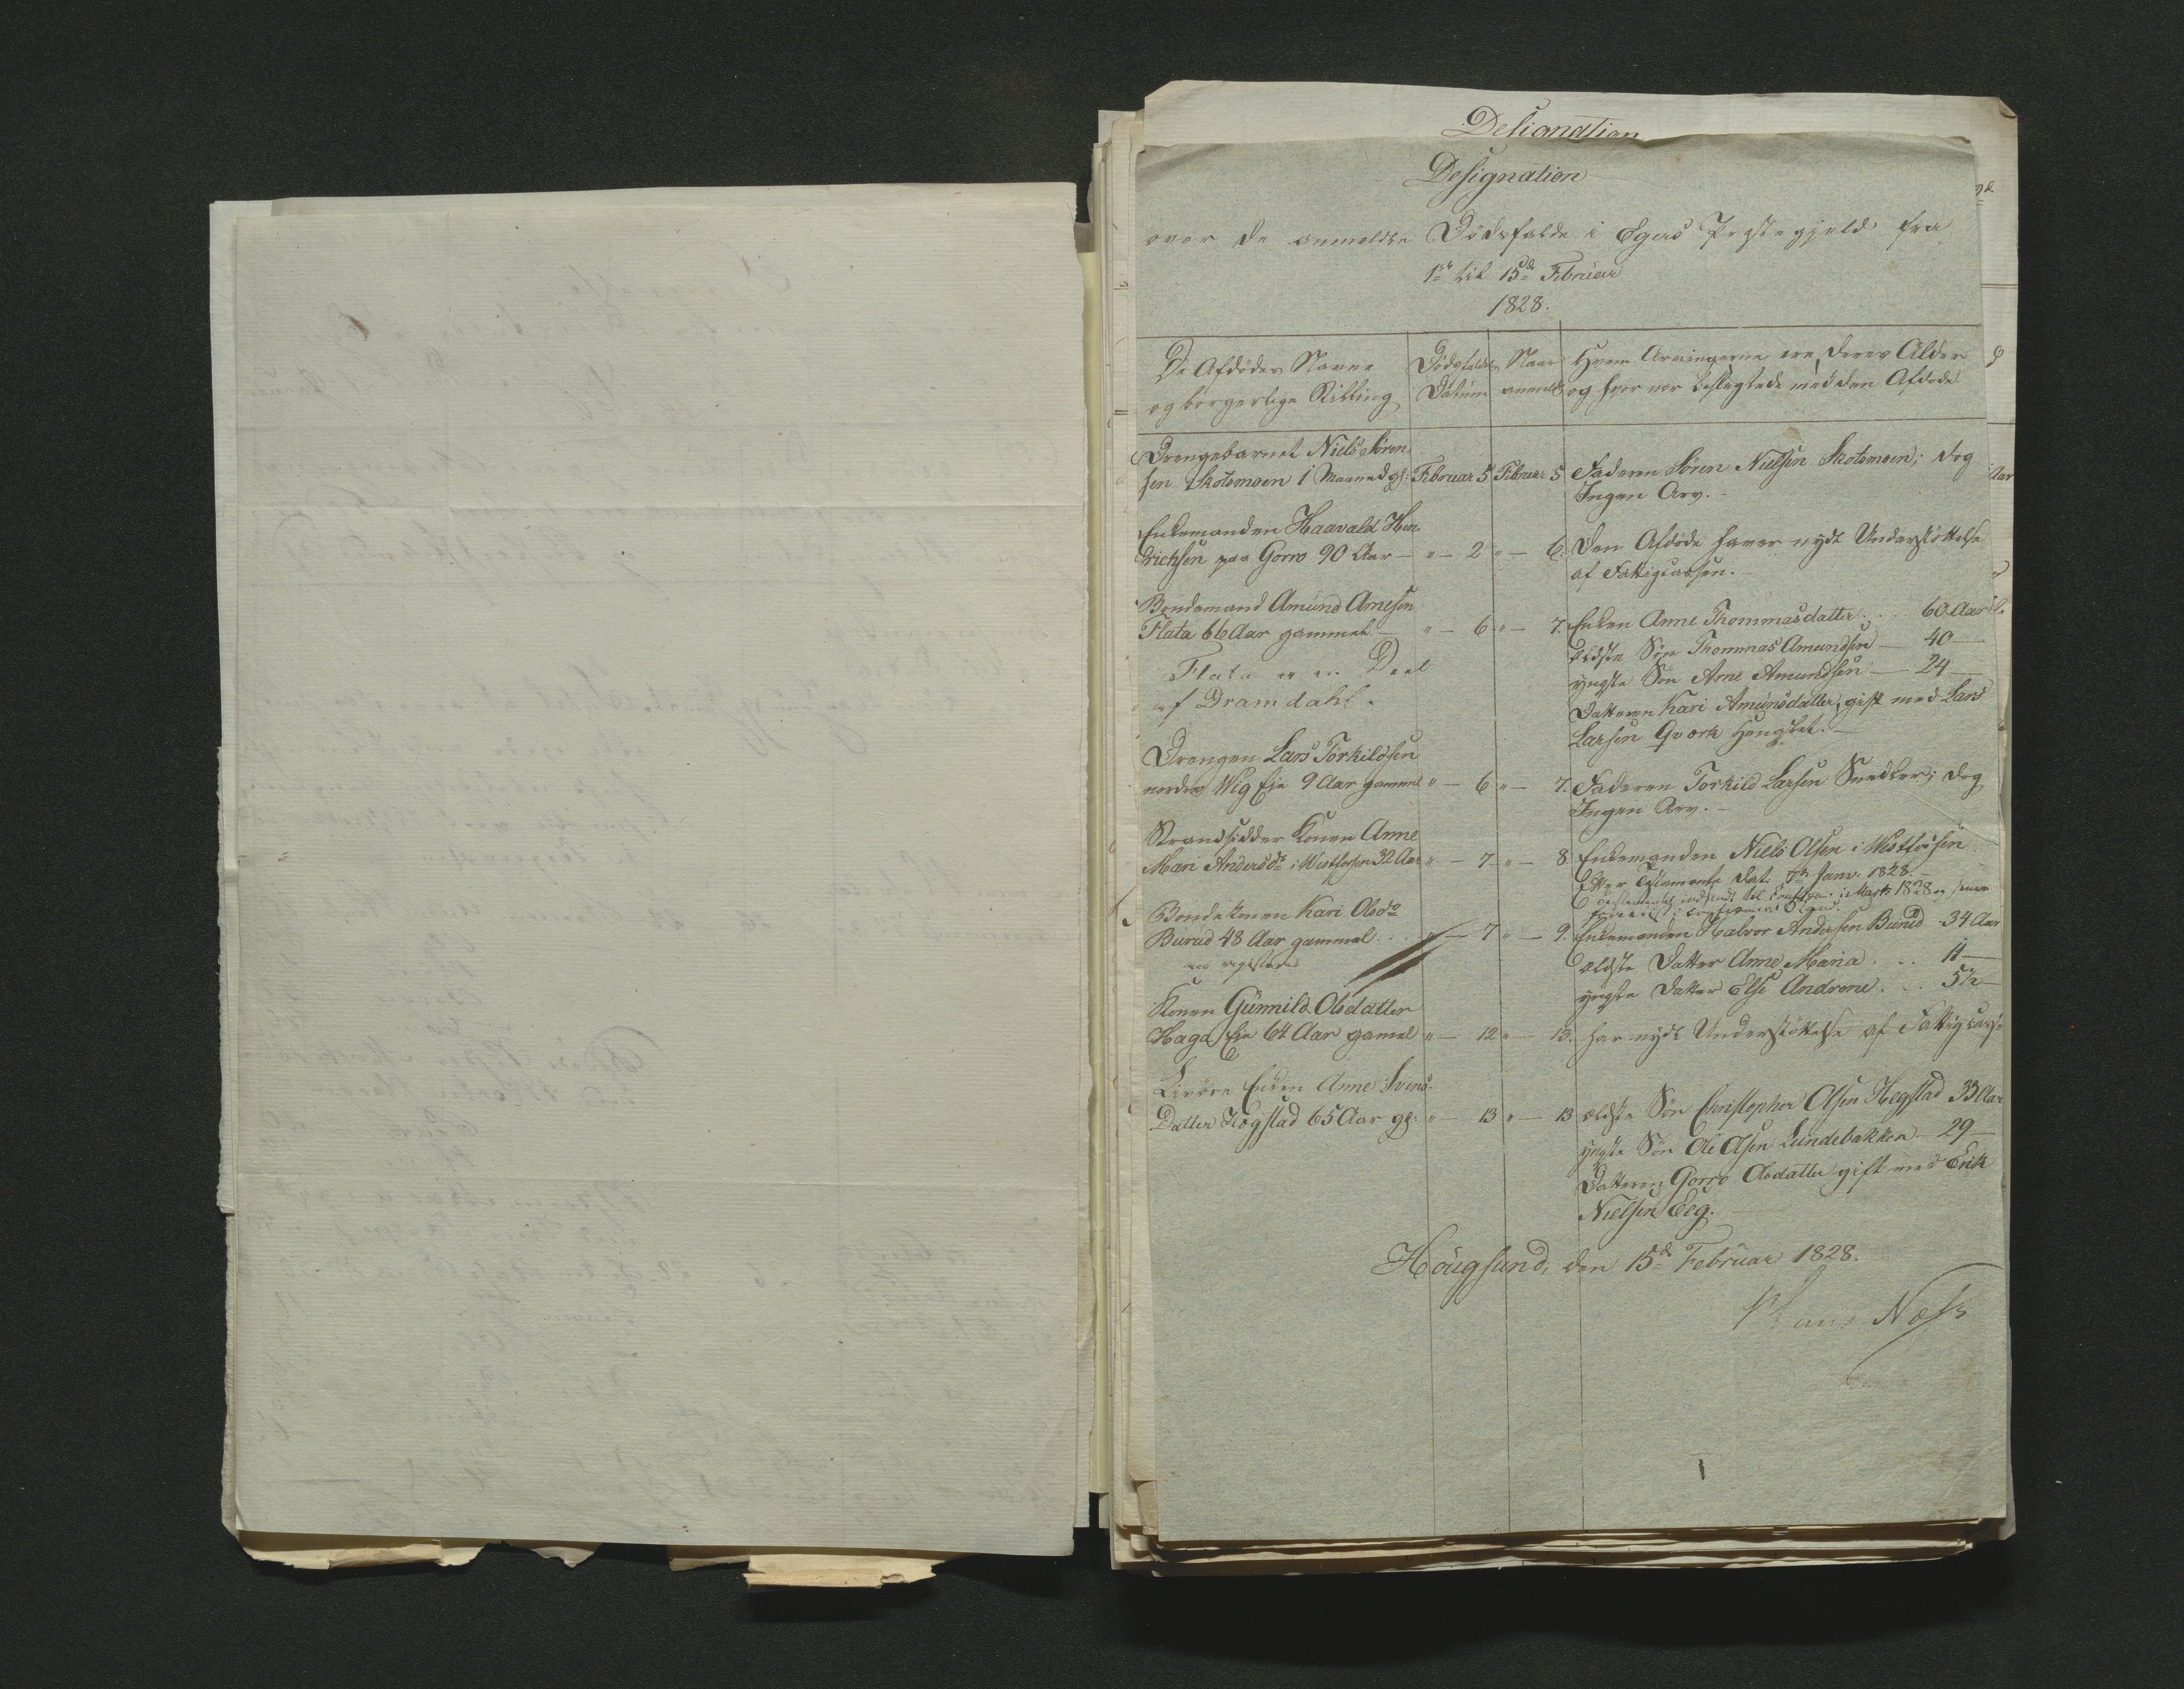 Designation
Designation
over de anmeldte Dödsfalde i Egers Præstegjeld fra
1ste til 15de Februar
1828.
De Afdödes Navne
og borgerlige Stilling
Dödsfaldets
Datum
Naar
anmeldt
Hvem Arvingerne ere, deres Alder
og hvor nær beslægtede med den Afdöde.
Drengebarnet Niels Sören-
sen Skotsmoen 1 Maaned gl: Februar 5 Februar 5
Faderen Sören Nielsen Skotsmoen; dog
Ingen Arv.
Enkemanden Haavald Hen-
richsen paa Gorro 90 Aar — " — 2 " — 6.
Den Afdöde haver nydt Understöttelse
af Fattigcassen.
Bondemand Amund Arnesen
Flata 66 Aar gammel — " — 6 " — 7.
Flata er en Deel
af Dramdahl.
Enken Anne Thommasdatter . . 60 Aar
ældste Sön Thommas Amundsen — 40 —
yngste Sön Arne Amundsen — 24 —
Datteren Kari Amunsdatter, gift med Lars
Larsen Qværk
Drengen Lars Torkildsen
nordre Wlg Eje 9 Aar gammel " — 6 " — 7.
Faderen Torkild Larsen Snedker; dog
Ingen Arv. —
Strandsidder Konen Anne
Mari Andersdr i Westfossen 32 Aar " — 7 " — 8
Enkemanden Niels Olsen i Westfossen
Efter Testamente dat. Janv. 1828. —
Testamentet indsendt til i Marts 1828 og
Bondekonen Kari Olsdr
Burud 48 Aar gammel . . — 7 " — 9.
registeret
Enkemanden Halvor Andersen Burud . 34 Aar
ældste Datter Anne Maria . . . 11 —
yngste Datter Else Andrene . . . 5½ —
Konen Gunnild Olsdatter
Haga Eje 64 Aar gamel " — 12 " — 13.
har nydt Understöttelse af Fattigcassen
Enken Anne Svens-
Datter Hægstad 65 Aar gl: " — 13 " — 13
ældste Sön Christopher Olsen Hegstad 33 Aar
yngste Sön Ole Olsen Lundebakken — 29 —
Datteren Gorro Olsdatter gift med Erik
Nielsen Eeg. —
Hougsund, den 15de Februar 1828.
Hans Næss